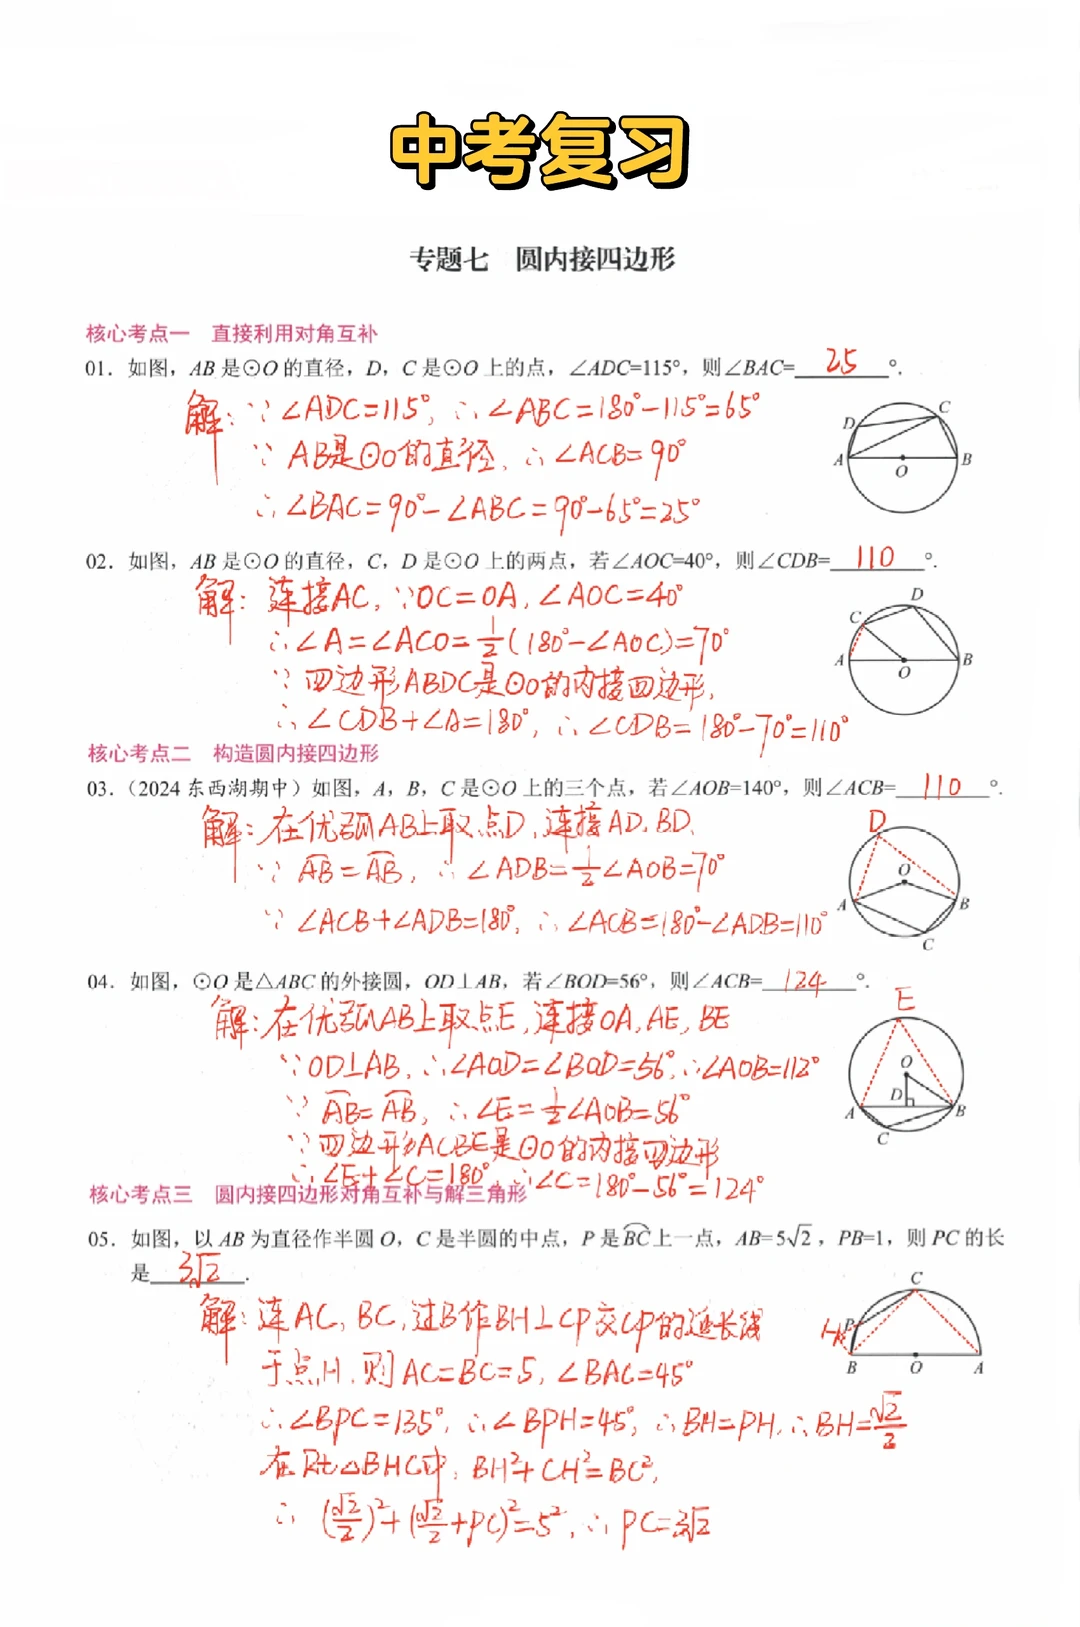 中考复习
专题七 圆内接四边形
核心考点一 直接利用对角互补
01. 如图，AB是⊙O的直径，D，C是⊙O上的点，∠ADC=115°，则∠BAC= 25 °.
解：∵∠ADC=115°，∴∠ABC=180°-115°=65°
∵AB是⊙O的直径，∴∠ACB=90°
∴∠BAC=90°-∠ABC=90°-65°=25°
D C A O B
02. 如图，AB是⊙O的直径，C，D是⊙O上的两点，若∠AOC=40°，则∠CDB= 110 °.
解：连接AC，∵OC=OA，∠AOC=40°
∴∠A=∠ACO=1/2(180°-∠AOC)=70°
∵四边形ABDC是⊙O的内接四边形，
∴∠CDB+∠A=180°，∴∠CDB=180°-70°=110°
D C A O B
核心考点二 构造圆内接四边形
03.（2024东西湖期中）如图，A，B，C是⊙O上的三个点，若∠AOB=140°，则∠ACB= 110 °.
解：在优弧AB上取点D，连接AD，BD，
∵⌒AB=⌒AB，∴∠ADB=1/2∠AOB=70°
∵∠ACB+∠ADB=180°，∴∠ACB=180°-∠ADB=110°
D O A B C
04. 如图，⊙O是△ABC的外接圆，OD⊥AB，若∠BOD=56°，则∠ACB= 124 °.
解：在优弧AB上取点E，连接OA，AE，BE
∵OD⊥AB，∴∠AOD=∠BOD=56°，∴∠AOB=112°
∵⌒AB=⌒AB，∴∠E=1/2∠AOB=56°
∵四边形ACBE是⊙O的内接四边形
∴∠E+∠C=180°，∴∠C=180°-56°=124°
E O D A B C
核心考点三 圆内接四边形对角互补与解三角形
05. 如图，以AB为直径作半圆O，C是半圆的中点，P是⌒BC上一点，AB=5√2，PB=1，则PC的长
是 3√2 .
解：连AC，BC，过B作BH⊥CP交CP的延长线
于点H，则AC=BC=5，∠BAC=45°
∴∠BPC=135°，∴∠BPH=45°，∴BH=PH，∴BH=√2/2
在Rt△BHC中，BH²+CH²=BC²，
∴(√2/2)²+(√2/2+PC)²=5²，∴PC=3√2
C H P B O A